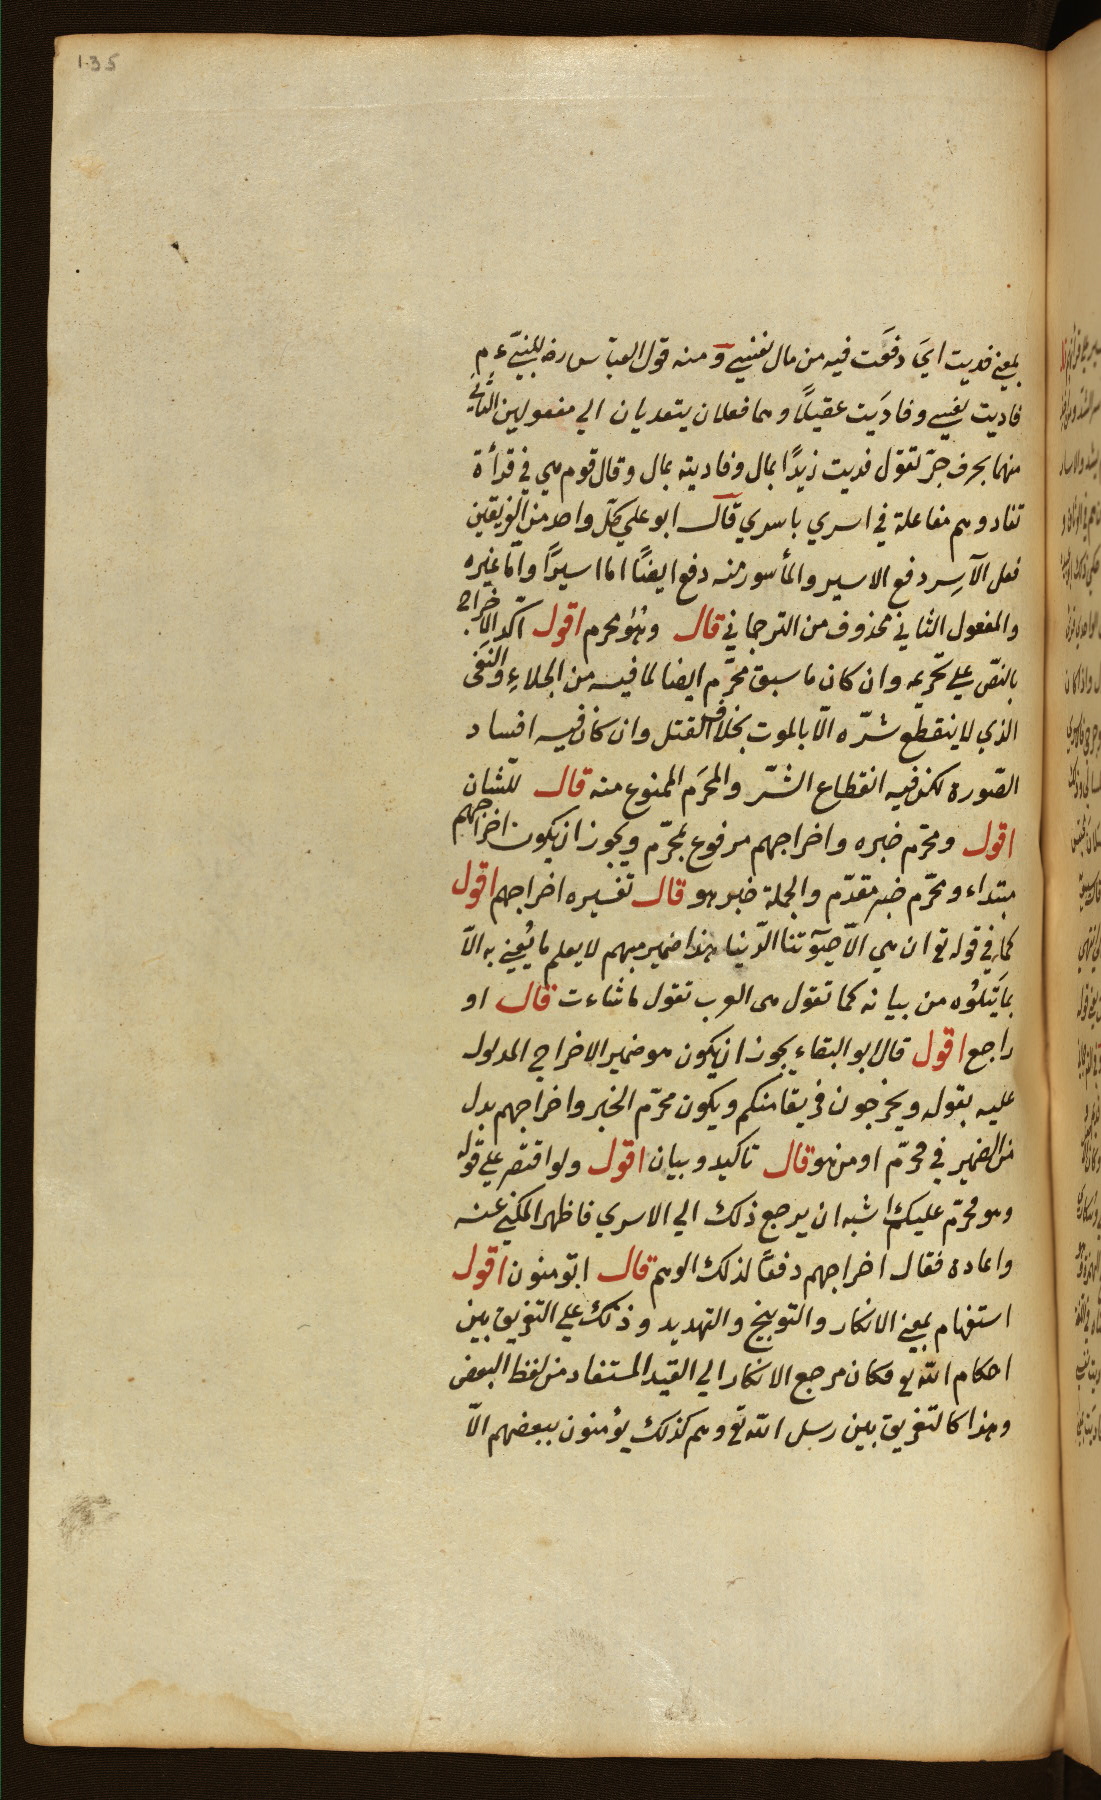 1.35
بمعنى فديت اي دفعت فيه من مال نفسي و منه قول العباس رضه للنبي ع م
فاديت نفسي وفاديت عقيلًا وهما فعلان يتعديان الي مفعولين الثاني
منهما بحرف جرّ تقول فديت زيدًا بمال وفاديته بمال وقال قوم هي في قرأة
تفادوهم مفاعلة في اسري باسري قال ابو علي كلّ واحد من الفريقين
فعل الآسِر دفع الاسير والمأسور منه دفع ايضًا اما اسيرًا وامّا غيره
والمفعول الثاني محذوف من الترجماني قال وهُوَ محرم اقول اكّد الاخراج
بالنصّ علي تحريمه وان كان ما سبق محرّم ايضا لما فيه من الجلاءِ والنفى
الذي لا ينقطع شرّه الّا بالموت بخلاف القتل وان كان فيه افساد
الصّورة لكن فيه انقطاع الشرّ والمحرَم الممنوع منه قال للشان
اقول ومحرّم خبره واخراجهم مرفوع بمحرّم ويجوز ان يكون اخراجهم
مبتداء ومحرّم خبر مقدّم والجملة خبر هو قال تفسيره اخراجهم اقول
كما في قوله تع ان هي الّا حيوٰتنا الدّنيا هذا ضمير مبهم لا يعلم ما يُعنى به الّا
بما يَتلُوُه من بيانه كما تقول هى العرب تقول ما شاءت قال او
راجع اقول قال ابو البقاء يجوز ان يكون هو ضمير الاخراج المدلول
عليه بقوله ويخرجون فريقا منكم ويكون محرّم الخبر واخراجهم بدل
من الضمير في محرّم او من هو قال تاكيد وبيان اقول ولو اقتصر علي قوله
وهو محرّم عليكم اشبه ان يرجع ذلك الي الاسري فاظهر المكني عنه
واعاده فقال اخراجهم دفعًا لذلك الوهم قال افتؤمنون اقول
استفهام بمعنى الانكار والتوبيخ والتهديد وذلك علي التفريق بين
احكام الله تع فكان مرجع الانكار الي القيد المستفاد من لفظ البعض
وهذا كالتفريق بين رسل الله تع وهم كذلك يؤمنون ببعضهم الّا